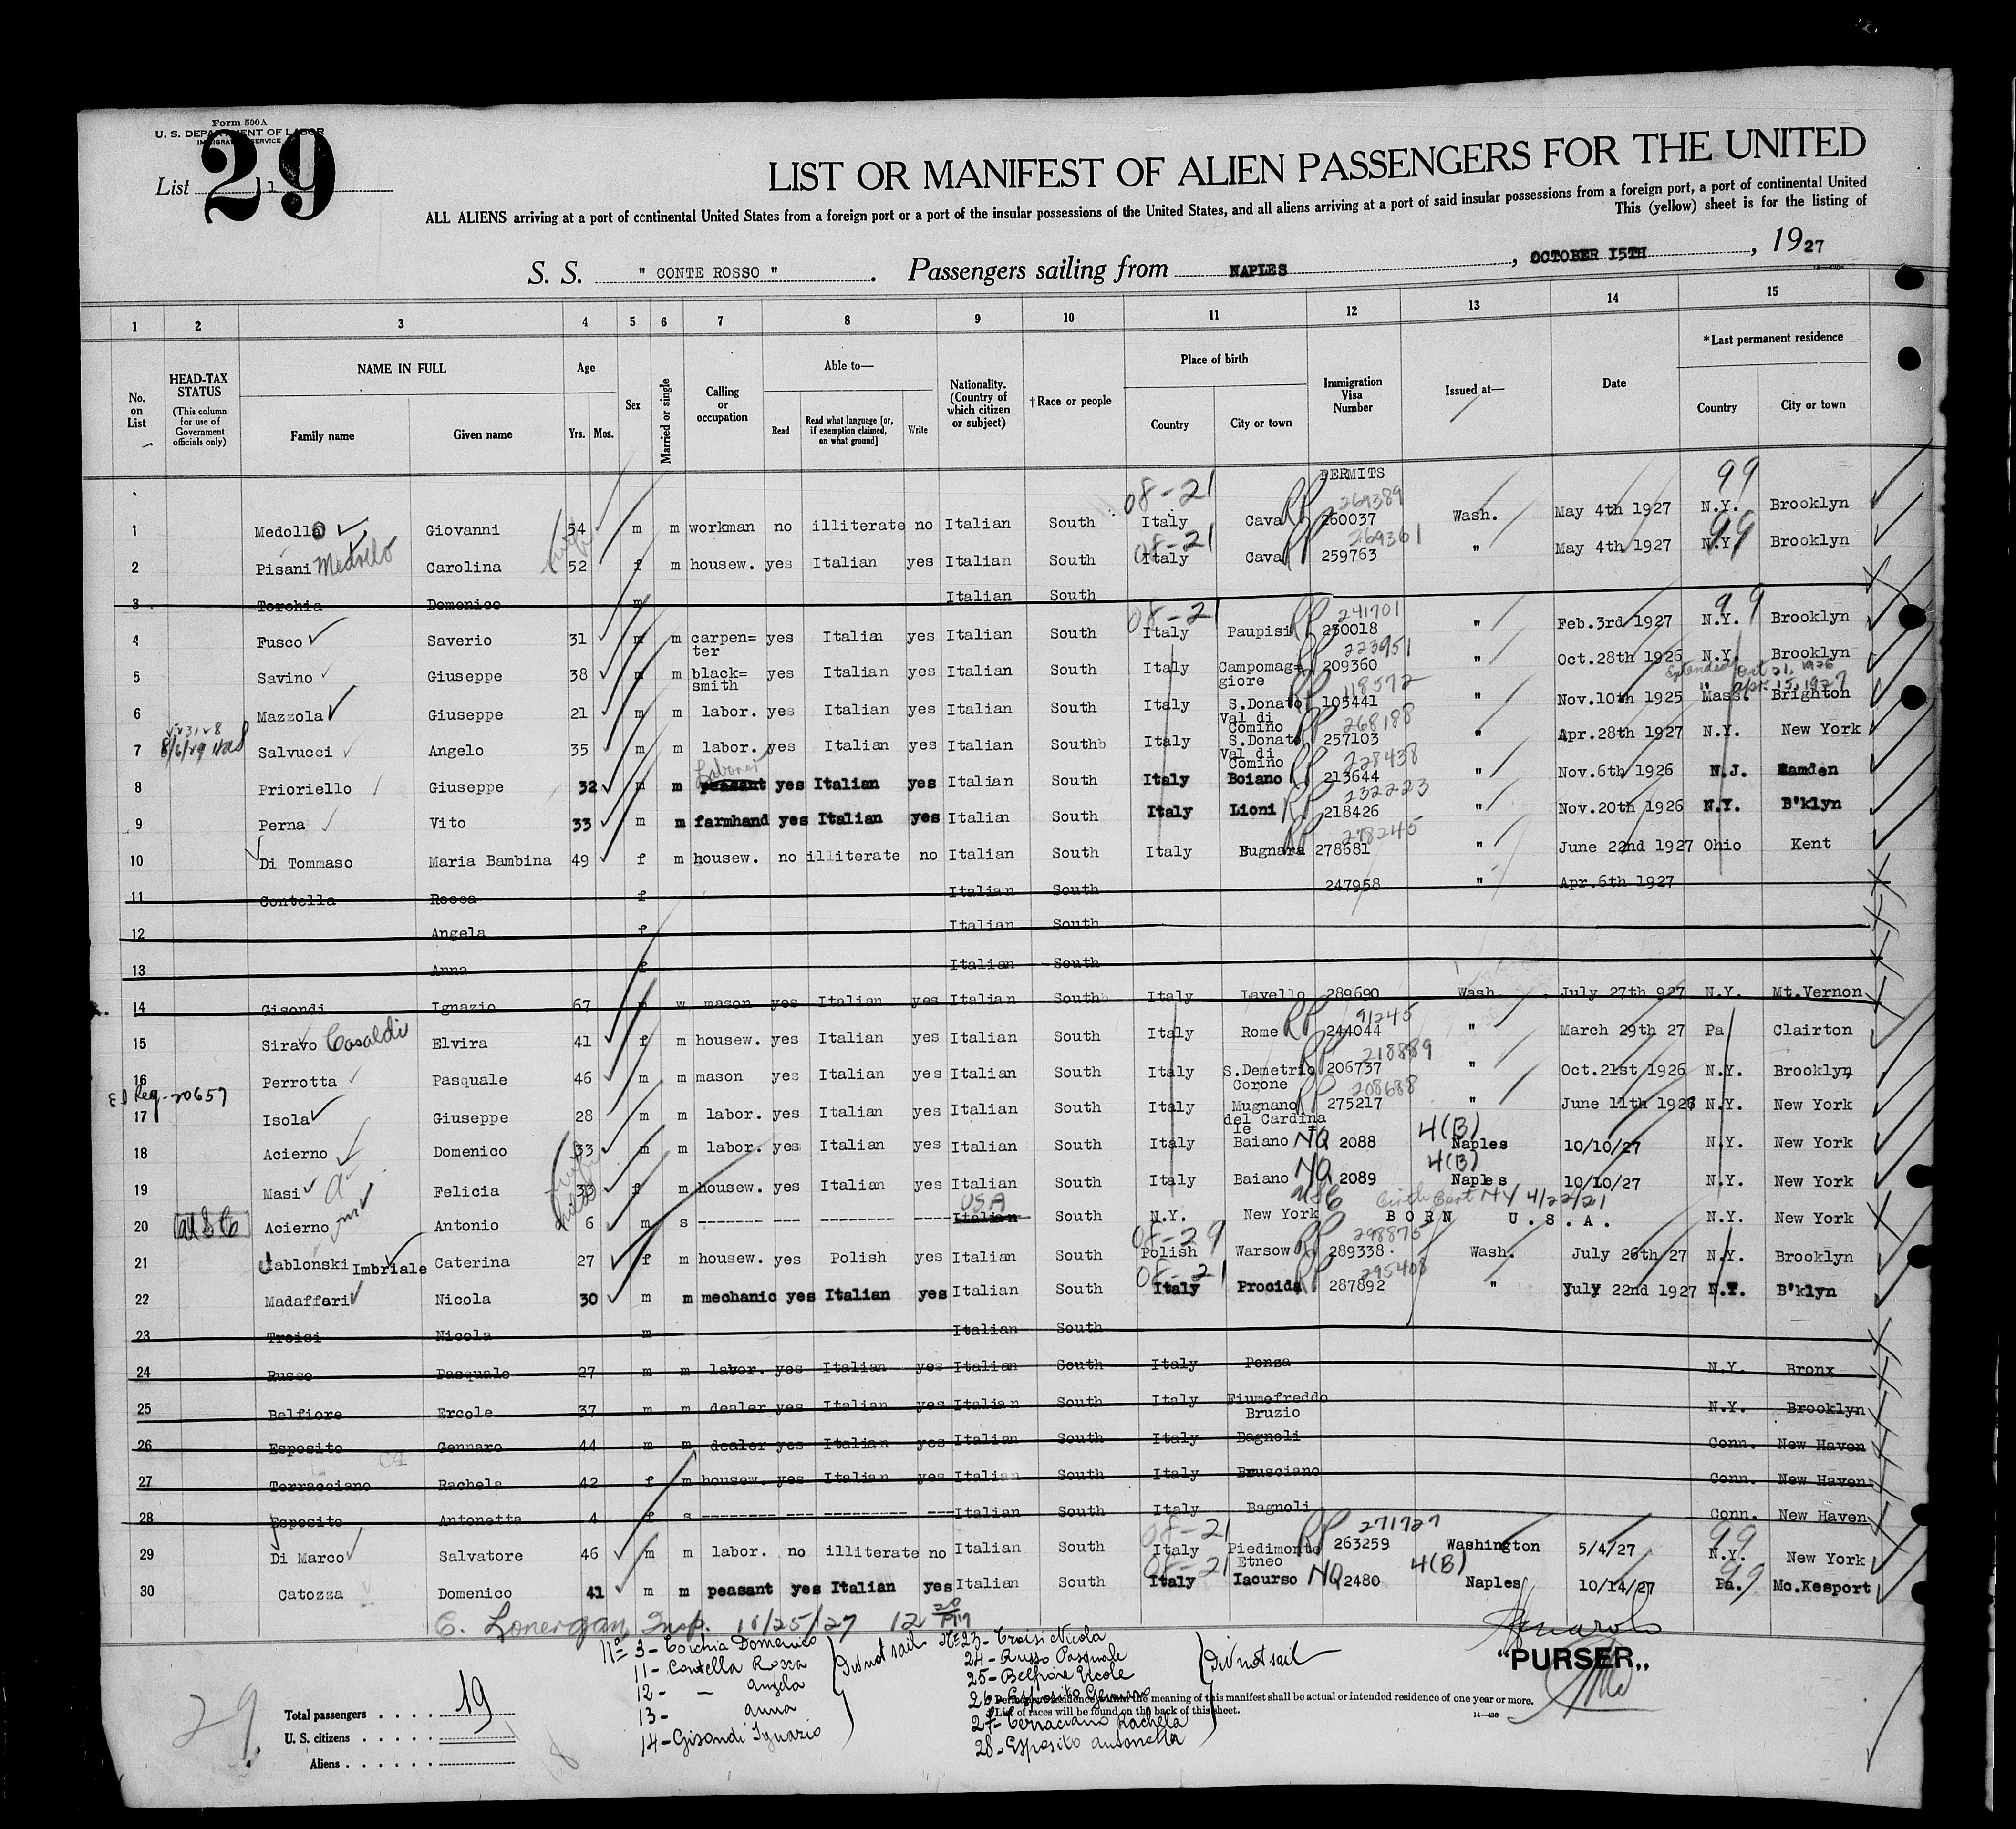 Form 500A
U. S. DEPARTMENT OF LABOR
IMMIGRATION SERVICE
29
List 1
LIST OR MANIFEST OF ALIEN PASSENGERS FOR THE UNITED
ALL ALIENS arriving at a port of continental United States from a foreign port or a port of the insular possessions of the United States, and all aliens arriving at a port of said insular possessions from a foreign port, a port of continental United
This (yellow) sheet is for the listing of
S. S. " CONTE ROSSO " . Passengers sailing from NAPLES , OCTOBER 15TH , 1927
1 2 3 4 5 6 7 8 9 10 11 12 13 14 15
No. on List
HEAD-TAX STATUS (This column for use of Government officials only)
NAME IN FULL Family name Given name
Age Yrs. Mos.
Sex
Married or single
Calling or occupation
Able to— Read Read what language [or, if exemption claimed, on what ground] Write
Nationality. (Country of which citizen or subject)
†Race or people
Place of birth Country City or town
Immigration Visa Number
Issued at—
Date
*Last permanent residence Country City or town
PERMITS
08-21 RP 269389 99
1 Medolla Giovanni 54 m m workman no illiterate no Italian South Italy Cava 260037 Wash. May 4th 1927 N.Y. Brooklyn
08-21 RP 269361 99
2 Pisani Carolina 52 f m housew. yes Italian yes Italian South Italy Cava 259763 " May 4th 1927 N.Y. Brooklyn
3 Torchia Domenico m Italian South
08-21 RP 241701 99
4 Fusco Saverio 31 m m carpen= ter yes Italian yes Italian South Italy Paupisi 230018 " Feb.3rd 1927 N.Y. Brooklyn
RP 223951
5 Savino Giuseppe 38 m m black= smith yes Italian yes Italian South Italy Campomag= giore 209360 " Oct.28th 1926 N.Y. Brooklyn
RP 118572 Extended Oct 21, 1926 Apr. 15, 1927
6 Mazzola Giuseppe 21 m m labor. yes Italian yes Italian South Italy S.Donato Val di Comino 105441 " Nov.10th 1925 Mass. Brighton
RP 268188
7 Salvucci Angelo 35 m m labor. yes Italian yes Italian South Italy S.Donato Val di Comino 257103 " Apr.28th 1927 N.Y. New York
Laborer RP 228438
8 Prioriello Giuseppe 32 m m peasant yes Italian yes Italian South Italy Boiano 213644 " Nov.6th 1926 N.J. Camden
RP 232223
9 Perna Vito 33 m m farmhand yes Italian yes Italian South Italy Lioni 218426 " Nov.20th 1926 N.Y. B'klyn
RP 278245
10 Di Tommaso Maria Bambina 49 f m housew. no illiterate no Italian South Italy Bugnara 278681 " June 22nd 1927 Ohio Kent
11 Contella Rocca f Italian South 247958 " Apr.6th 1927
12 Angela f Italian South
13 Anna f Italian South
14 Gisondi Ignazio 67 m w mason yes Italian yes Italian South Italy Lavello 289690 Wash. July 27th 927 N.Y. Mt.Vernon
RP 91245
15 Siravo Casaldi Elvira 41 f m housew. yes Italian yes Italian South Italy Rome 244044 " March 29th 27 Pa Clairton
RP 218889
16 Perrotta Pasquale 46 m m mason yes Italian yes Italian South Italy S.Demetrio Corone 206737 " Oct.21st 1926 N.Y. Brooklyn
RP 208688
17 Isola Giuseppe 28 m m labor. yes Italian yes Italian South Italy Mugnano del Cardina le 275217 " June 11th 1926 N.Y. New York
18 Acierno Domenico 33 m m labor. yes Italian yes Italian South Italy Baiano NQ 2088 4(B) Naples 10/10/27 N.Y. New York
19 Masi Felicia 33 f m housew. yes Italian yes Italian South Italy Baiano NQ 2089 4(B) Naples 10/10/27 N.Y. New York
USA USC Birth Cert NY 4/22/21
20 USC Acierno Antonio 6 m s Italian South N.Y. New York BORN U.S.A. N.Y. New York
08-29 RP 298875
21 Jablonski Imbriale Caterina 27 f m housew. yes Polish yes Italian South Polish Warsow 289338 Wash. July 26th 27 N.Y. Brooklyn
08-21 RP 295408
22 Madaffari Nicola 30 m m mechanic yes Italian yes Italian South Italy Procida 287892 " July 22nd 1927 N.Y. B'klyn
23 Troisi Nicola m Italian South
24 Russo Pasquale 27 m m labor. yes Italian yes Italian South Italy Ponza N.Y. Bronx
25 Belfiore Ercole 37 m m dealer yes Italian yes Italian South Italy Fiumefreddo Bruzio N.Y. Brooklyn
26 Esposito Gennaro 44 m m dealer yes Italian yes Italian South Italy Bagnoli Conn. New Haven
27 Terracciano Rachela 42 f m housew. yes Italian yes Italian South Italy Brusciano Conn. New Haven
28 Esposito Antonetta 4 f s Italian South Italy Bagnoli Conn. New Haven
08-21 RP 271727 99
29 Di Marco Salvatore 46 m m labor. no illiterate no Italian South Italy Piedimonte Etneo 263259 Washington 5/4/27 N.Y. New York
08-21 99
30 Catozza Domenico 41 m m peasant yes Italian yes Italian South Italy Iacurso NQ 2480 4(B) Naples 10/14/27 Pa. Mc.Kesport
C. Lonergan, Insp. 10/25/27
No 3- Torchia Domenico
11- Contella Rocca
12- — Angela
13- Anna
14- Gisondi Ignazio
Did not sail
No 23- Troisi Nicola
24- Russo Pasquale
25- Belfiore Ercole
26- Esposito Gennaro
27- Terraciano Rachela
28- Esposito Antonetta
Did not sail
"PURSER„
*Permanent residence within the meaning of this manifest shall be actual or intended residence of one year or more.
†List of races will be found on the back of this sheet.
14—430
29
Total passengers 19
U. S. citizens
Aliens
18